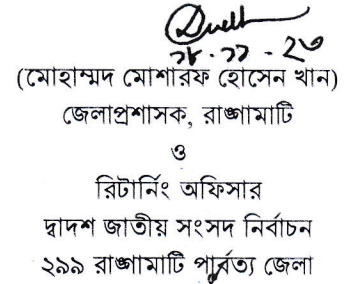 ২৮-১১-২৩
(মোহাম্মদ মোশারফ হোসেন খান)
জেলাপ্রশাসক, রাঙ্গামাটি
ও
রিটার্নিং অফিসার
দ্বাদশ জাতীয় সংসদ নির্বাচন
২৯৯ রাঙ্গামাটি পার্বত্য জেলা